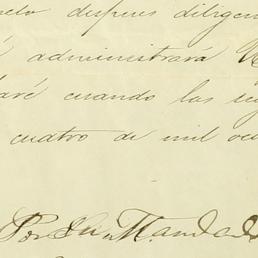 despues diligen
administrará
cuando las
cuatro de mil oc
Por su Mandado